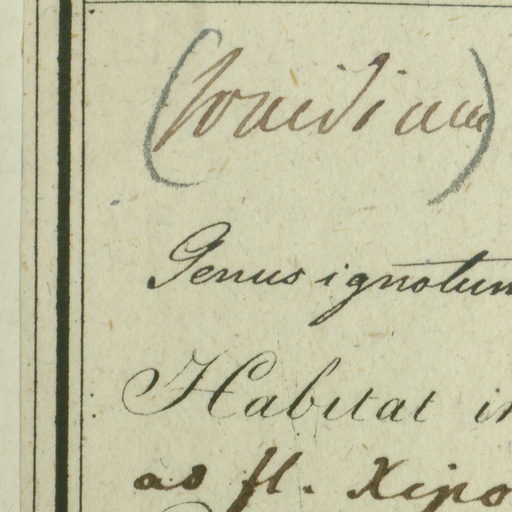 (Ionidium)
Genus ignotum
Habitat in
ad fl. Xipo